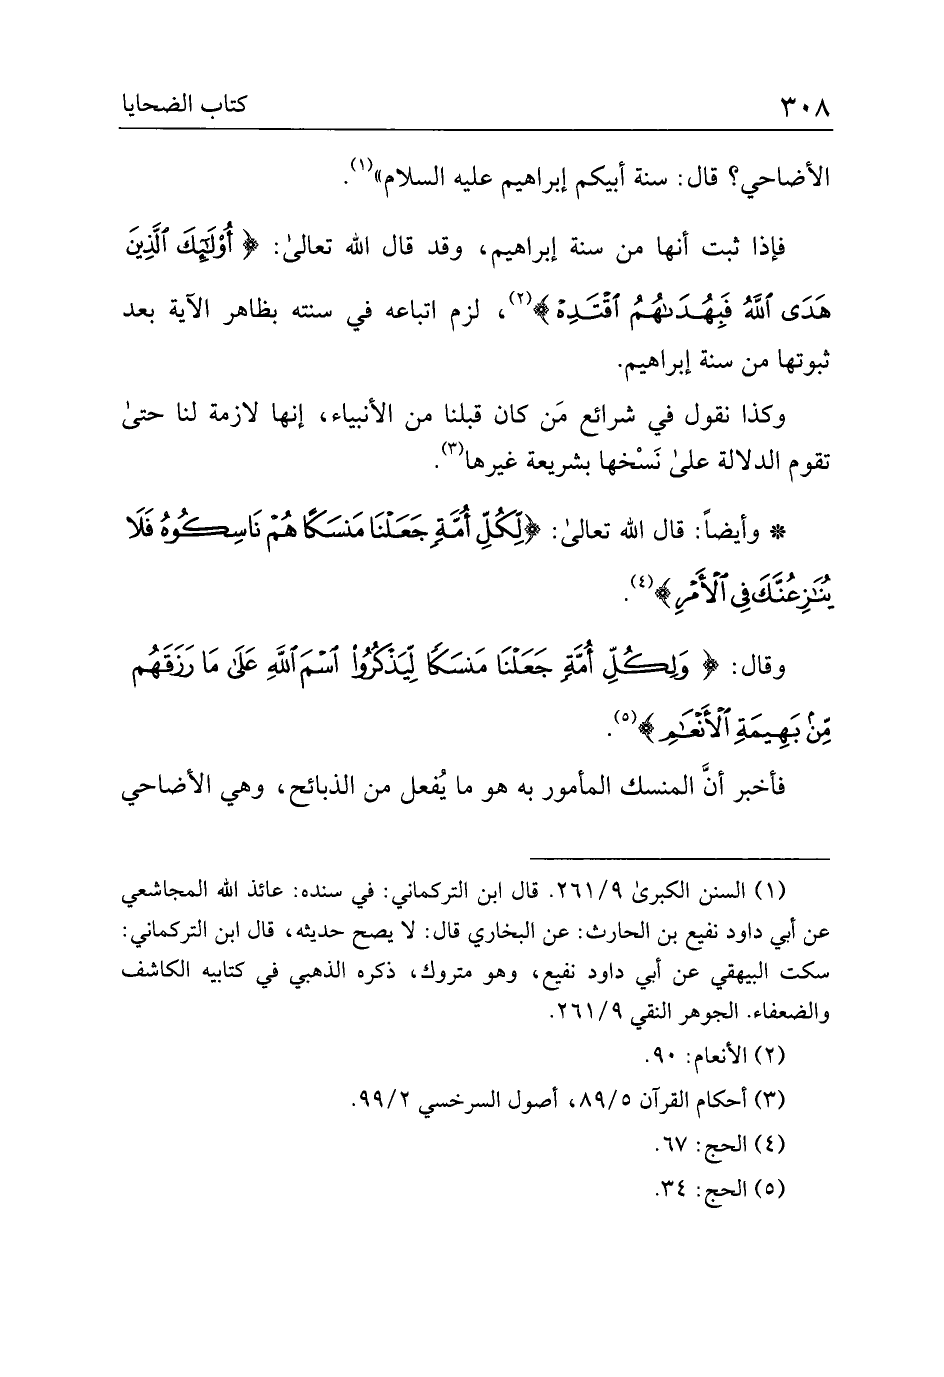 ٣٠٨ كتاب الضحايا
الأضاحي؟ قال: سنة أبيكم إبراهيم عليه السلام»(١).
فإذا ثبت أنها من سنة إبراهيم، وقد قال الله تعالىٰ: ﴿ أُوْلَٰٓئِكَ ٱلَّذِينَ
هَدَى ٱللَّهُ فَبِهُدَىٰهُمُ ٱقْتَدِهْ ﴾(٢)، لزم اتباعه في سنته بظاهر الآية بعد
ثبوتها من سنة إبراهيم.
وكذا نقول في شرائع مَن كان قبلنا من الأنبياء، إنها لازمة لنا حتىٰ
تقوم الدلالة علىٰ نَسْخها بشريعة غيرها(٣).
* وأيضاً: قال الله تعالىٰ: ﴿لِّكُلِّ أُمَّةٍ جَعَلْنَا مَنسَكًا هُمْ نَاسِكُوهُ فَلَا
يُنَٰزِعُنَّكَ فِى ٱلْأَمْرِ ﴾(٤).
وقال: ﴿ وَلِكُلِّ أُمَّةٍ جَعَلْنَا مَنسَكًا لِّيَذْكُرُواْ ٱسْمَ ٱللَّهِ عَلَىٰ مَا رَزَقَهُم
مِّنۢ بَهِيمَةِ ٱلْأَنْعَٰمِ ﴾(٥).
فأخبر أنَّ المنسك المأمور به هو ما يُفعل من الذبائح، وهي الأضاحي
(١) السنن الكبرىٰ ٢٦١/٩. قال ابن التركماني: في سنده: عائذ الله المجاشعي
عن أبي داود نفيع بن الحارث: عن البخاري قال: لا يصح حديثه، قال ابن التركماني:
سكت البيهقي عن أبي داود نفيع، وهو متروك، ذكره الذهبي في كتابيه الكاشف
والضعفاء. الجوهر النقي ٢٦١/٩.
(٢) الأنعام: ٩٠.
(٣) أحكام القرآن ٨٩/٥، أصول السرخسي ٩٩/٢.
(٤) الحج: ٦٧.
(٥) الحج: ٣٤.